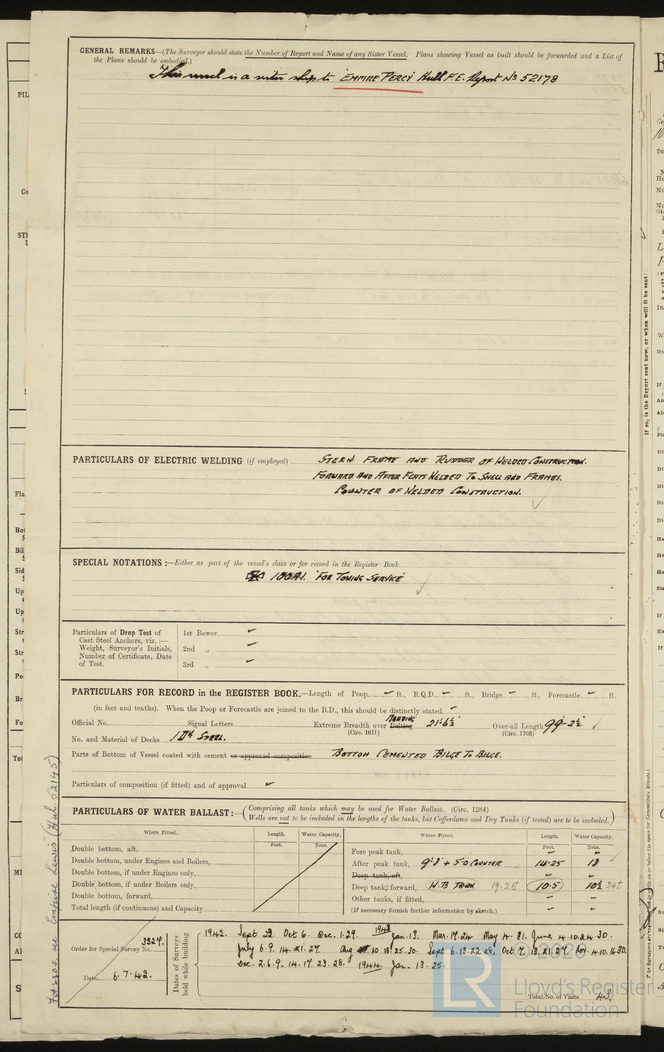 GENERAL REMARKS—(The Surveyor should state the Number of Report and Name of any Sister Vessel. Plans showing Vessel as built should be forwarded and a List of
the Plans should be embodied.)
This vessel is a sister ship to "EMPIRE PERCY" Hull F.E. Report No 52178
PARTICULARS OF ELECTRIC WELDING (if employed)
STERN FRAME AND RUDDER OF WELDED CONSTRUCTION.
FORWARD AND AFTER WELDED TO SHELL AND FRAMES.
COUNTER OF WELDED CONSTRUCTION.
SPECIAL NOTATIONS:—Either as part of the vessel's class or for record in the Register Book
100A1. "FOR TOWING SERVICE"
Particulars of Drop Test of
Cast Steel Anchors, viz.:—
Weight, Surveyor's Initials,
Number of Certificate, Date
of Test.
1st Bower
2nd „
3rd „
PARTICULARS FOR RECORD in the REGISTER BOOK.—Length of Poop ft., R.Q.D. ft., Bridge ft., Forecastle ft.
(in feet and tenths). When the Poop or Forecastle are joined to the B.D., this should be distinctly stated.
Official No. Signal Letters Extreme Breadth over Belting 27'-6½ Over-all Length 99'-2½
(Circ. 1611) (Circ. 1703)
No. and Material of Decks 1 DK STEEL.
Parts of Bottom of Vessel coated with cement or approved composition BOTTOM CEMENTED BILGE TO BILGE.
Particulars of composition (if fitted) and of approval
PARTICULARS OF WATER BALLAST:— (Comprising all tanks which may be used for Water Ballast. (Circ. 1284)
Wells are not to be included in the lengths of the tanks, but Cofferdams and Dry Tanks (if tested) are to be included.)
Where Fitted. Length. Water Capacity. Where Fitted. Length. Water Capacity.
Feet. Tons. Feet. Tons.
Double bottom, aft,
Double bottom, under Engines and Boilers,
Double bottom, if under Engines only,
Double bottom, if under Boilers only,
Double bottom, forward,
Total length (if continuous) and Capacity
Fore peak tank,
After peak tank, 9'3 + 5'0 COUNTER 14.25 18
Deep tank, aft,
Deep tank, forward, W.B TANK 19.25 10.5 10½
Other tanks, if fitted,
(If necessary furnish further information by sketch.)
Order for Special Survey No. 3329.
Date 6.7.42.
Dates of Surveys
held while building
1942. Sept 22. Oct 6. Dec. 1.29. 1943 Jan. 13. Mar. 17.24 May 4.31. June 4.10.24.30.
July 6.9.14.21.27. Aug 10.18.25.30. Sept 6.13.22.28. Oct 7.13.21.27. 4.10.16.30.
Dec. 2.6.9.14.17.23.28. 1944 Jan. 13.25.
Total No. of Visits 43
© 2020
LR
Lloyd's Register
Foundation